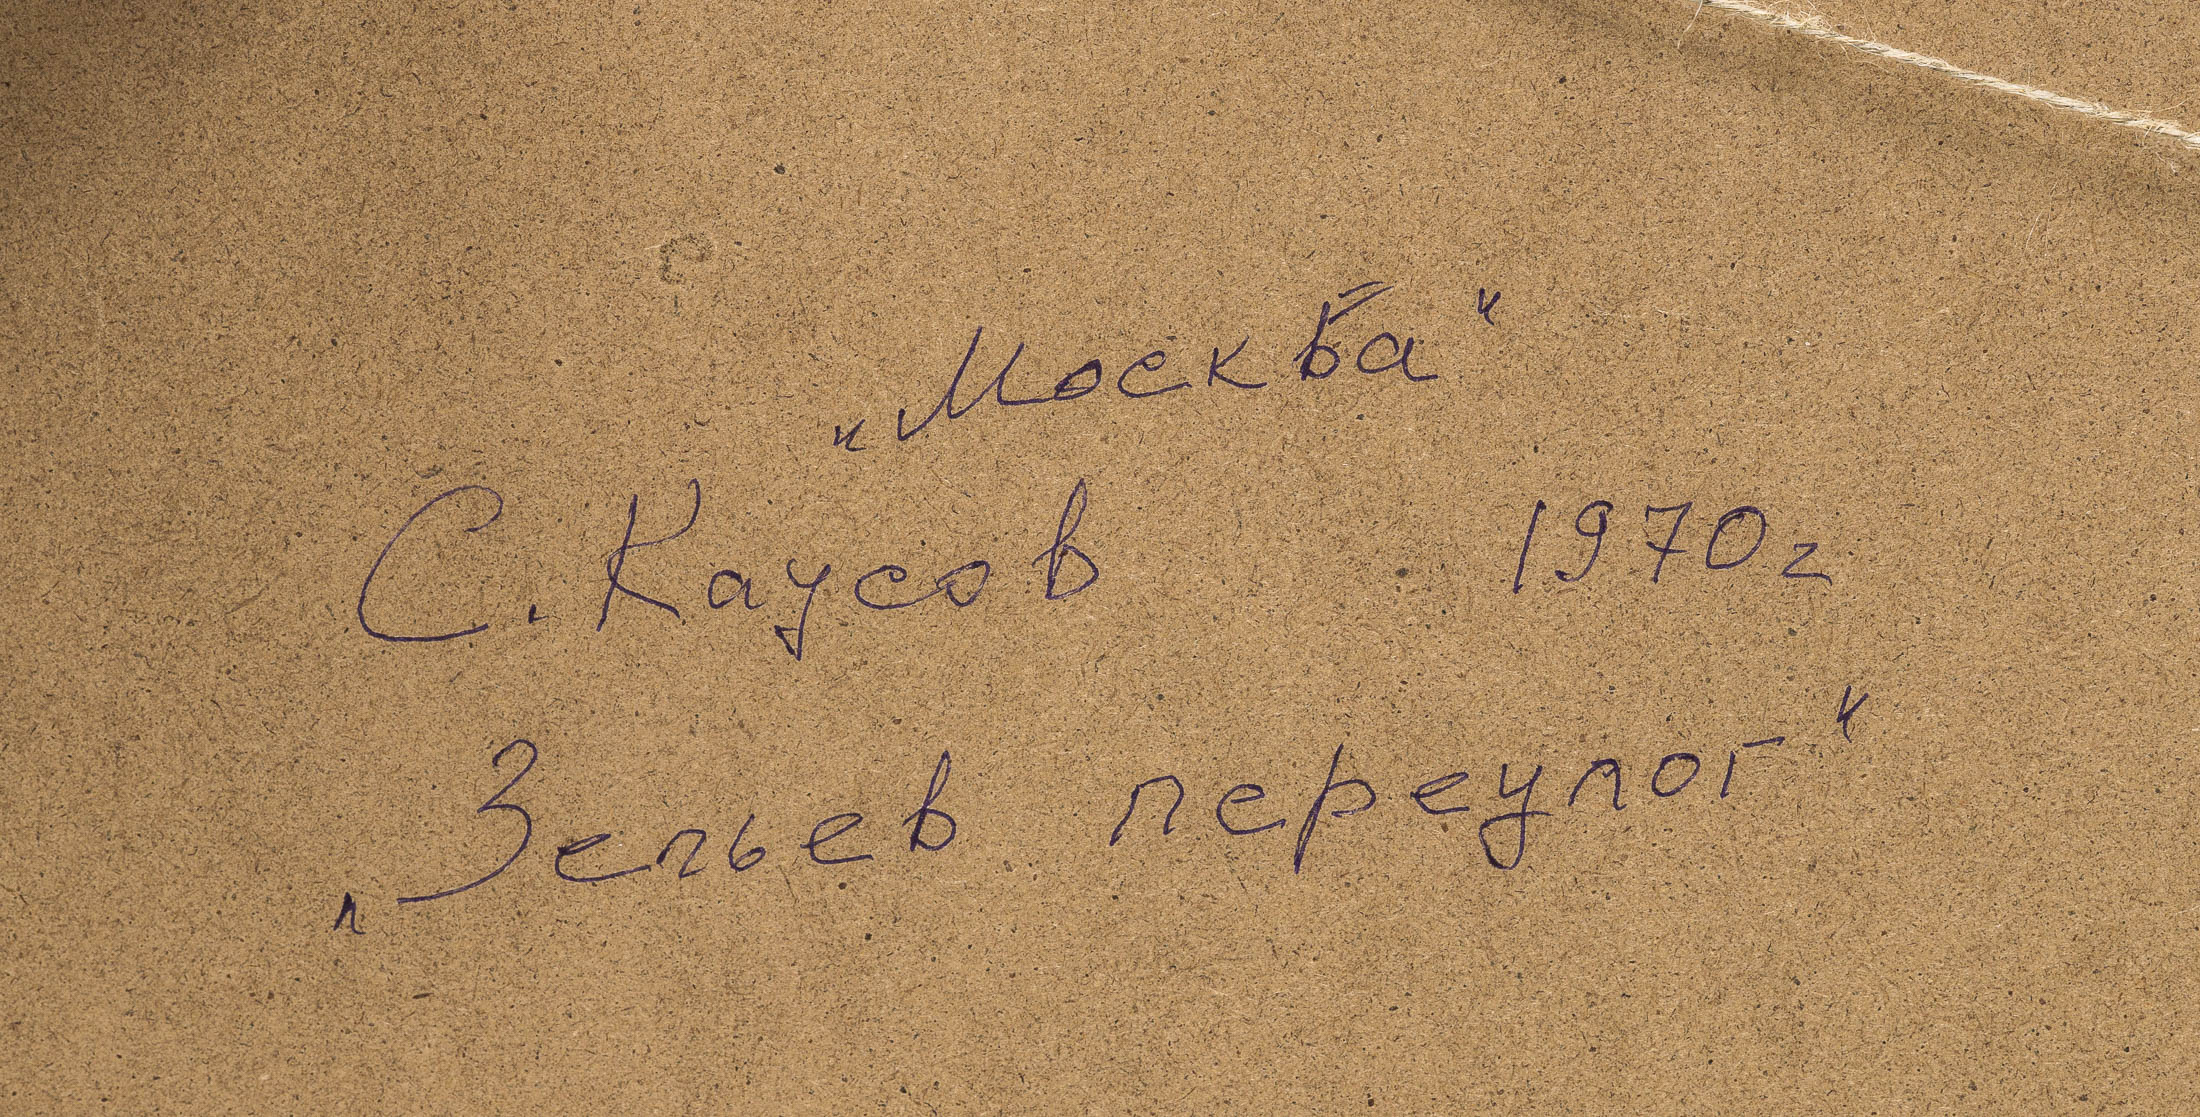 „Москва"
С. Каусов 1970г
„Зельев переулог"